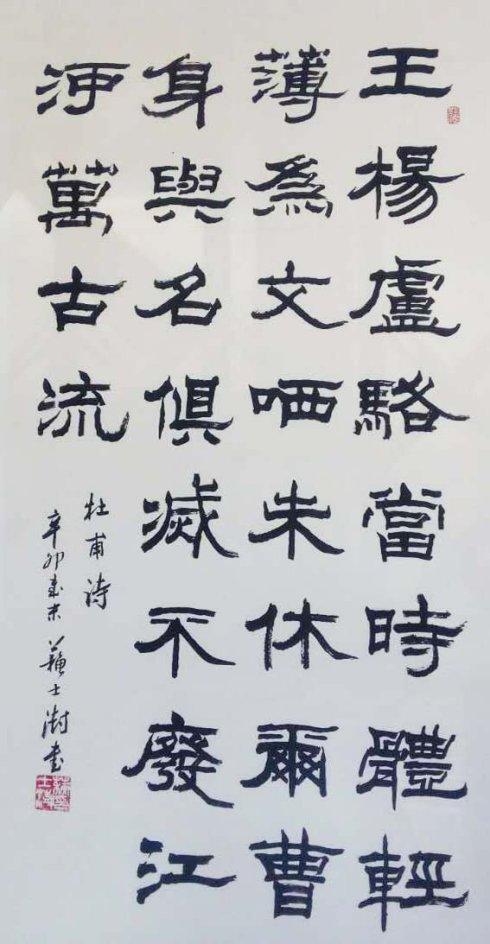 王楊盧駱當時體輕
薄爲文哂未休爾曹
身與名俱滅不廢江
河萬古流
杜甫诗
辛卯春末 蘇士澍書